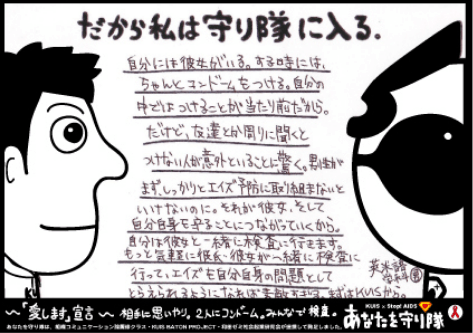 だから私は守り隊に入る.
自分には彼女がいる。する時には、
ちゃんとコンドームをつける。自分の
中ではつけることが当たり前だから。
だけど、友達とか周りに聞くと
つけない人が意外といることに驚く。男性が
まず、しっかりとエイズ予防に取り組まないと
いけないのに。それが彼女、そして
自分自身を守ることにつながっていくから。
自分は彼女と一緒に検査に行きます。
もっと気軽に彼氏・彼女が一緒に検査に
行って、エイズを自分自身の問題として
とらえられるようになれば素敵です。まずはKUISから。
英米語
KUIS x Stop! AIDS
〜「愛します。」宣言〜 相手に思いやり。2人にコンドーム。みんなで検査。
あなたを守り隊